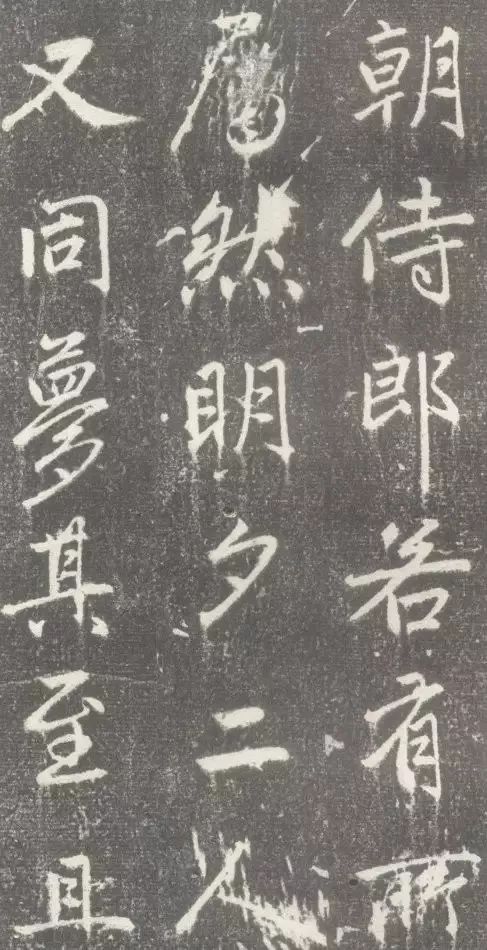 朝侍郎若有所
然明夕二人
又同夢其至且